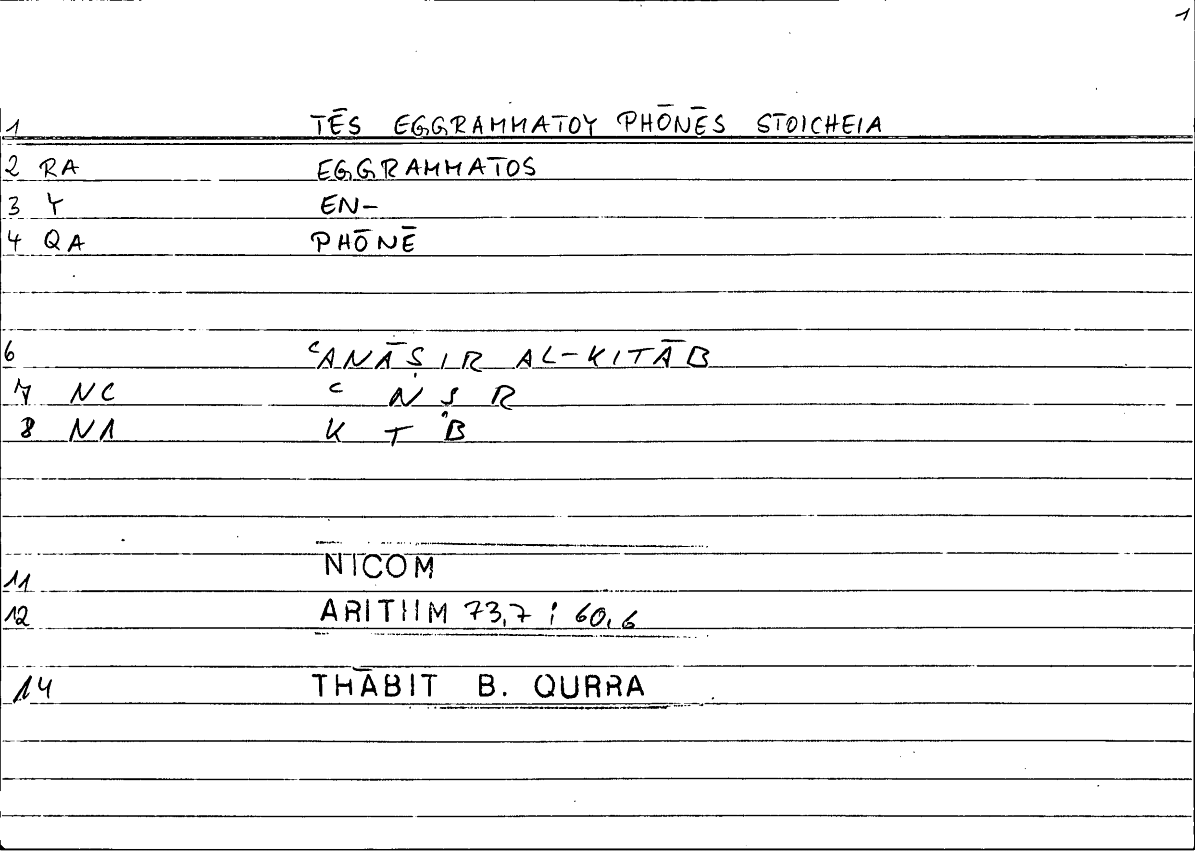 1
1 TĒS EGGRAMMATOY PHŌNĒS STOICHEIA
2 RA EGGRAMMATOS
3 Y EN-
4 QA PHŌNĒ
6 ʿANĀṢIR AL-KITĀB
7 NC ʿ N Ṣ R
8 NA K T B
11 NICOM
12 ARITHM 73,7 ; 60,6
14 THĀBIT B. QURRA